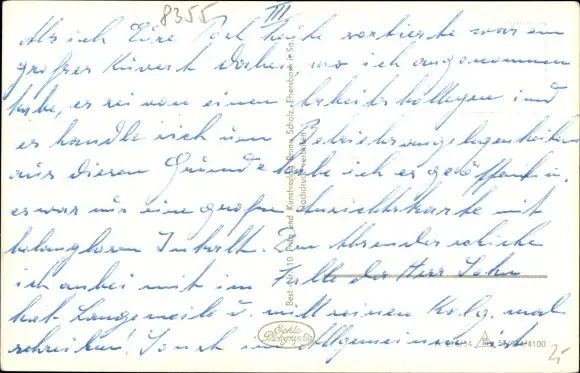 8355
III
Als ich Eure Post heute sortierte war ein
großes Kuvert dabei, wo ich angenommen
habe, es sei von einem Arbeitskollegen und
es handle sich um
aus diesem Grunde habe ich es geöffnet u.
es war nur eine große Ansichtskarte mit
belanglosem Inhalt. Den Absender schicke
ich anbei mit im Falle der Herr Sohn
hat Langeweile u. will seinen Kolg. mal
schreiben! Sonst im Allgemeinen ist
Best.-Nr. 10 Foto und Kunstverlag Bruno Scholz, Ebersbach in Sa.
Nachdruck verboten
Echte Photographie